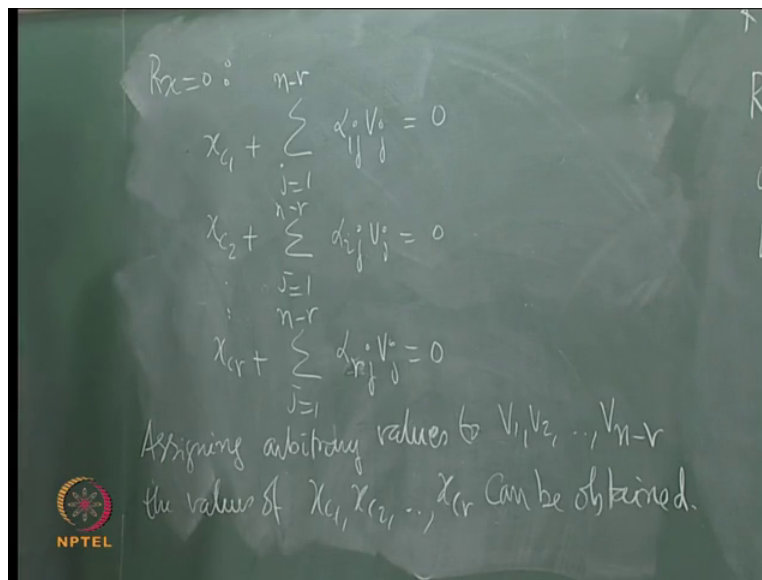 Rx=0 :
x_{c_1} + \sum_{j=1}^{n-r} α_{1j} V_j = 0
x_{c_2} + \sum_{j=1}^{n-r} α_{2j} V_j = 0
:
x_{cr} + \sum_{j=1}^{n-r} α_{rj} V_j = 0
Assigning arbitrary values to V_1, V_2, .., V_{n-r}
the values of x_{c_1}, x_{c_2}, .., x_{cr} can be obtained.
R
NPTEL